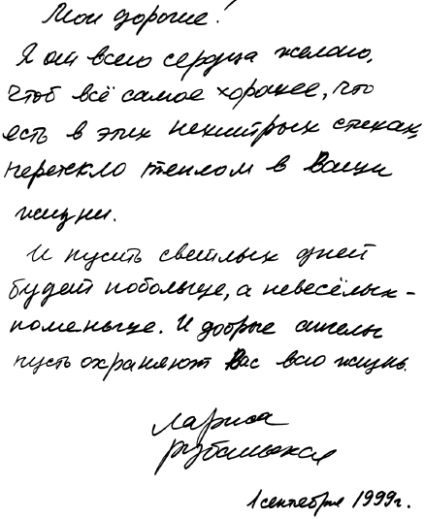 Мои дорогие!
Я от всего сердца желаю,
чтоб всё самое хорошее, что
есть в этих нехитрых стихах,
перетекло теплом в Ваши
жизни.
И пусть светлых дней
будет побольше, а невесёлых –
поменьше. И добрые ангелы
пусть охраняют Вас всю жизнь.
Лариса
Рубальская
1 сентября 1999г.